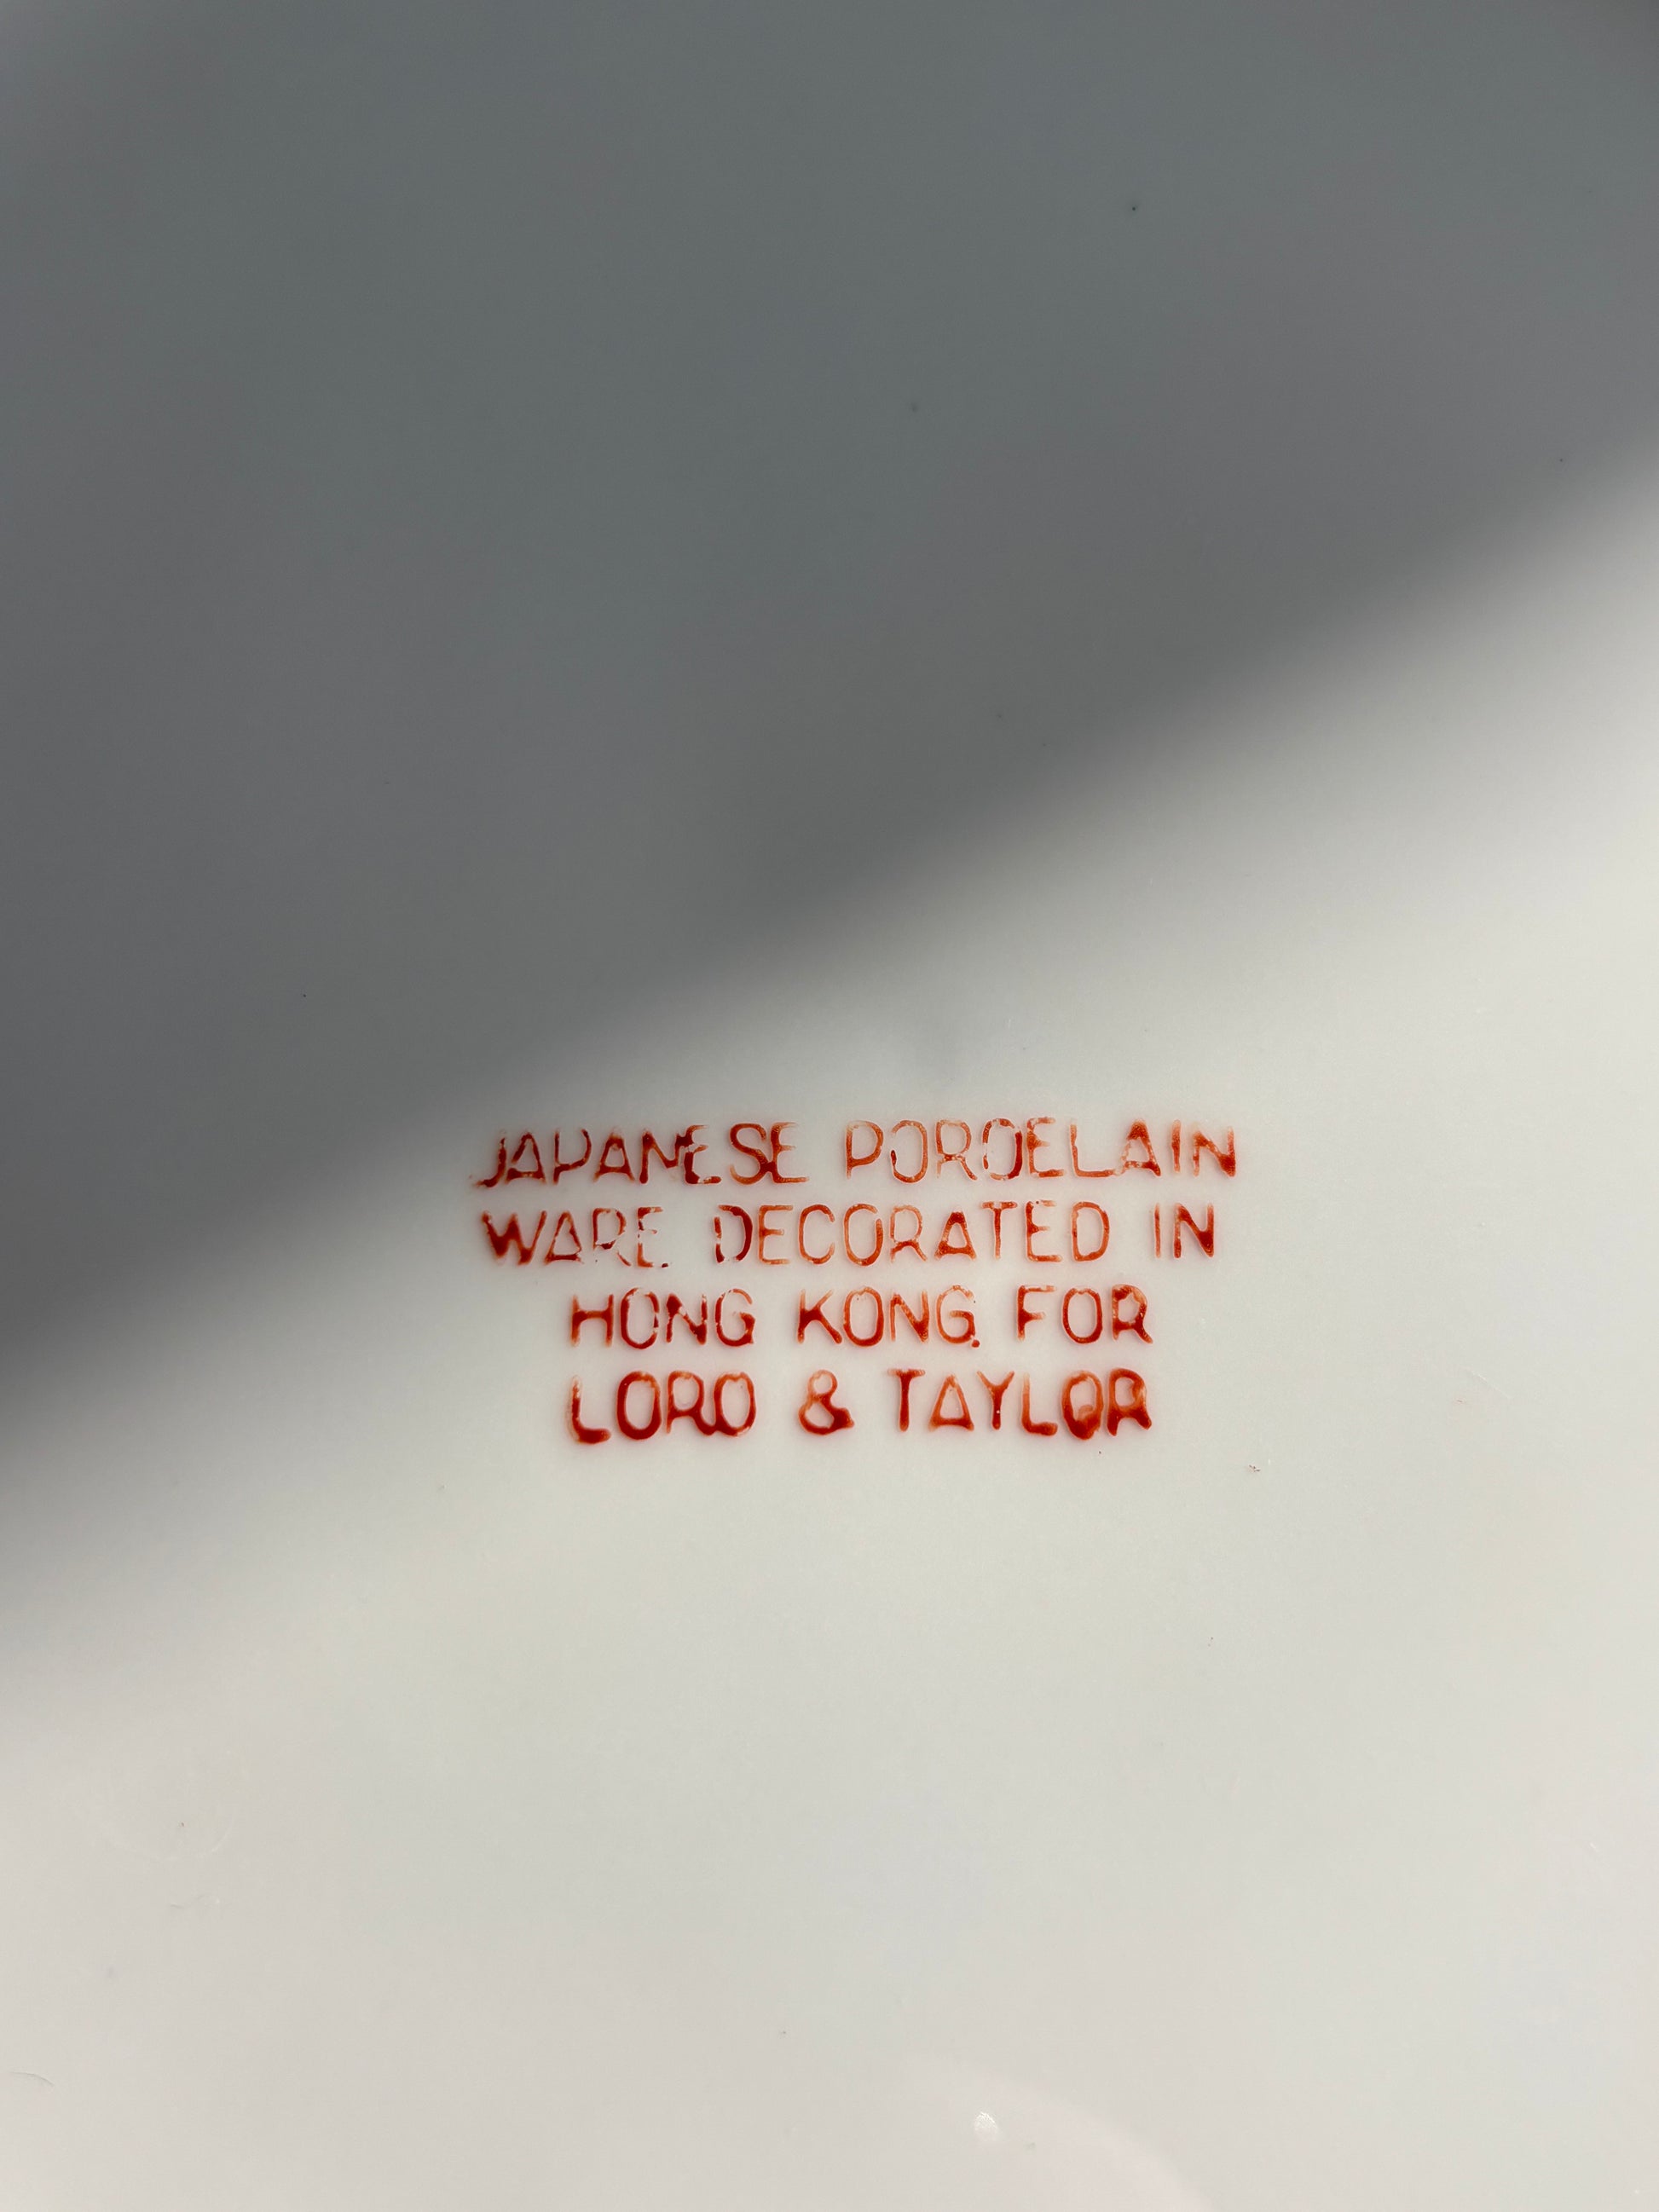 JAPANESE PORCELAIN
WARE DECORATED IN
HONG KONG FOR
LORD & TAYLOR